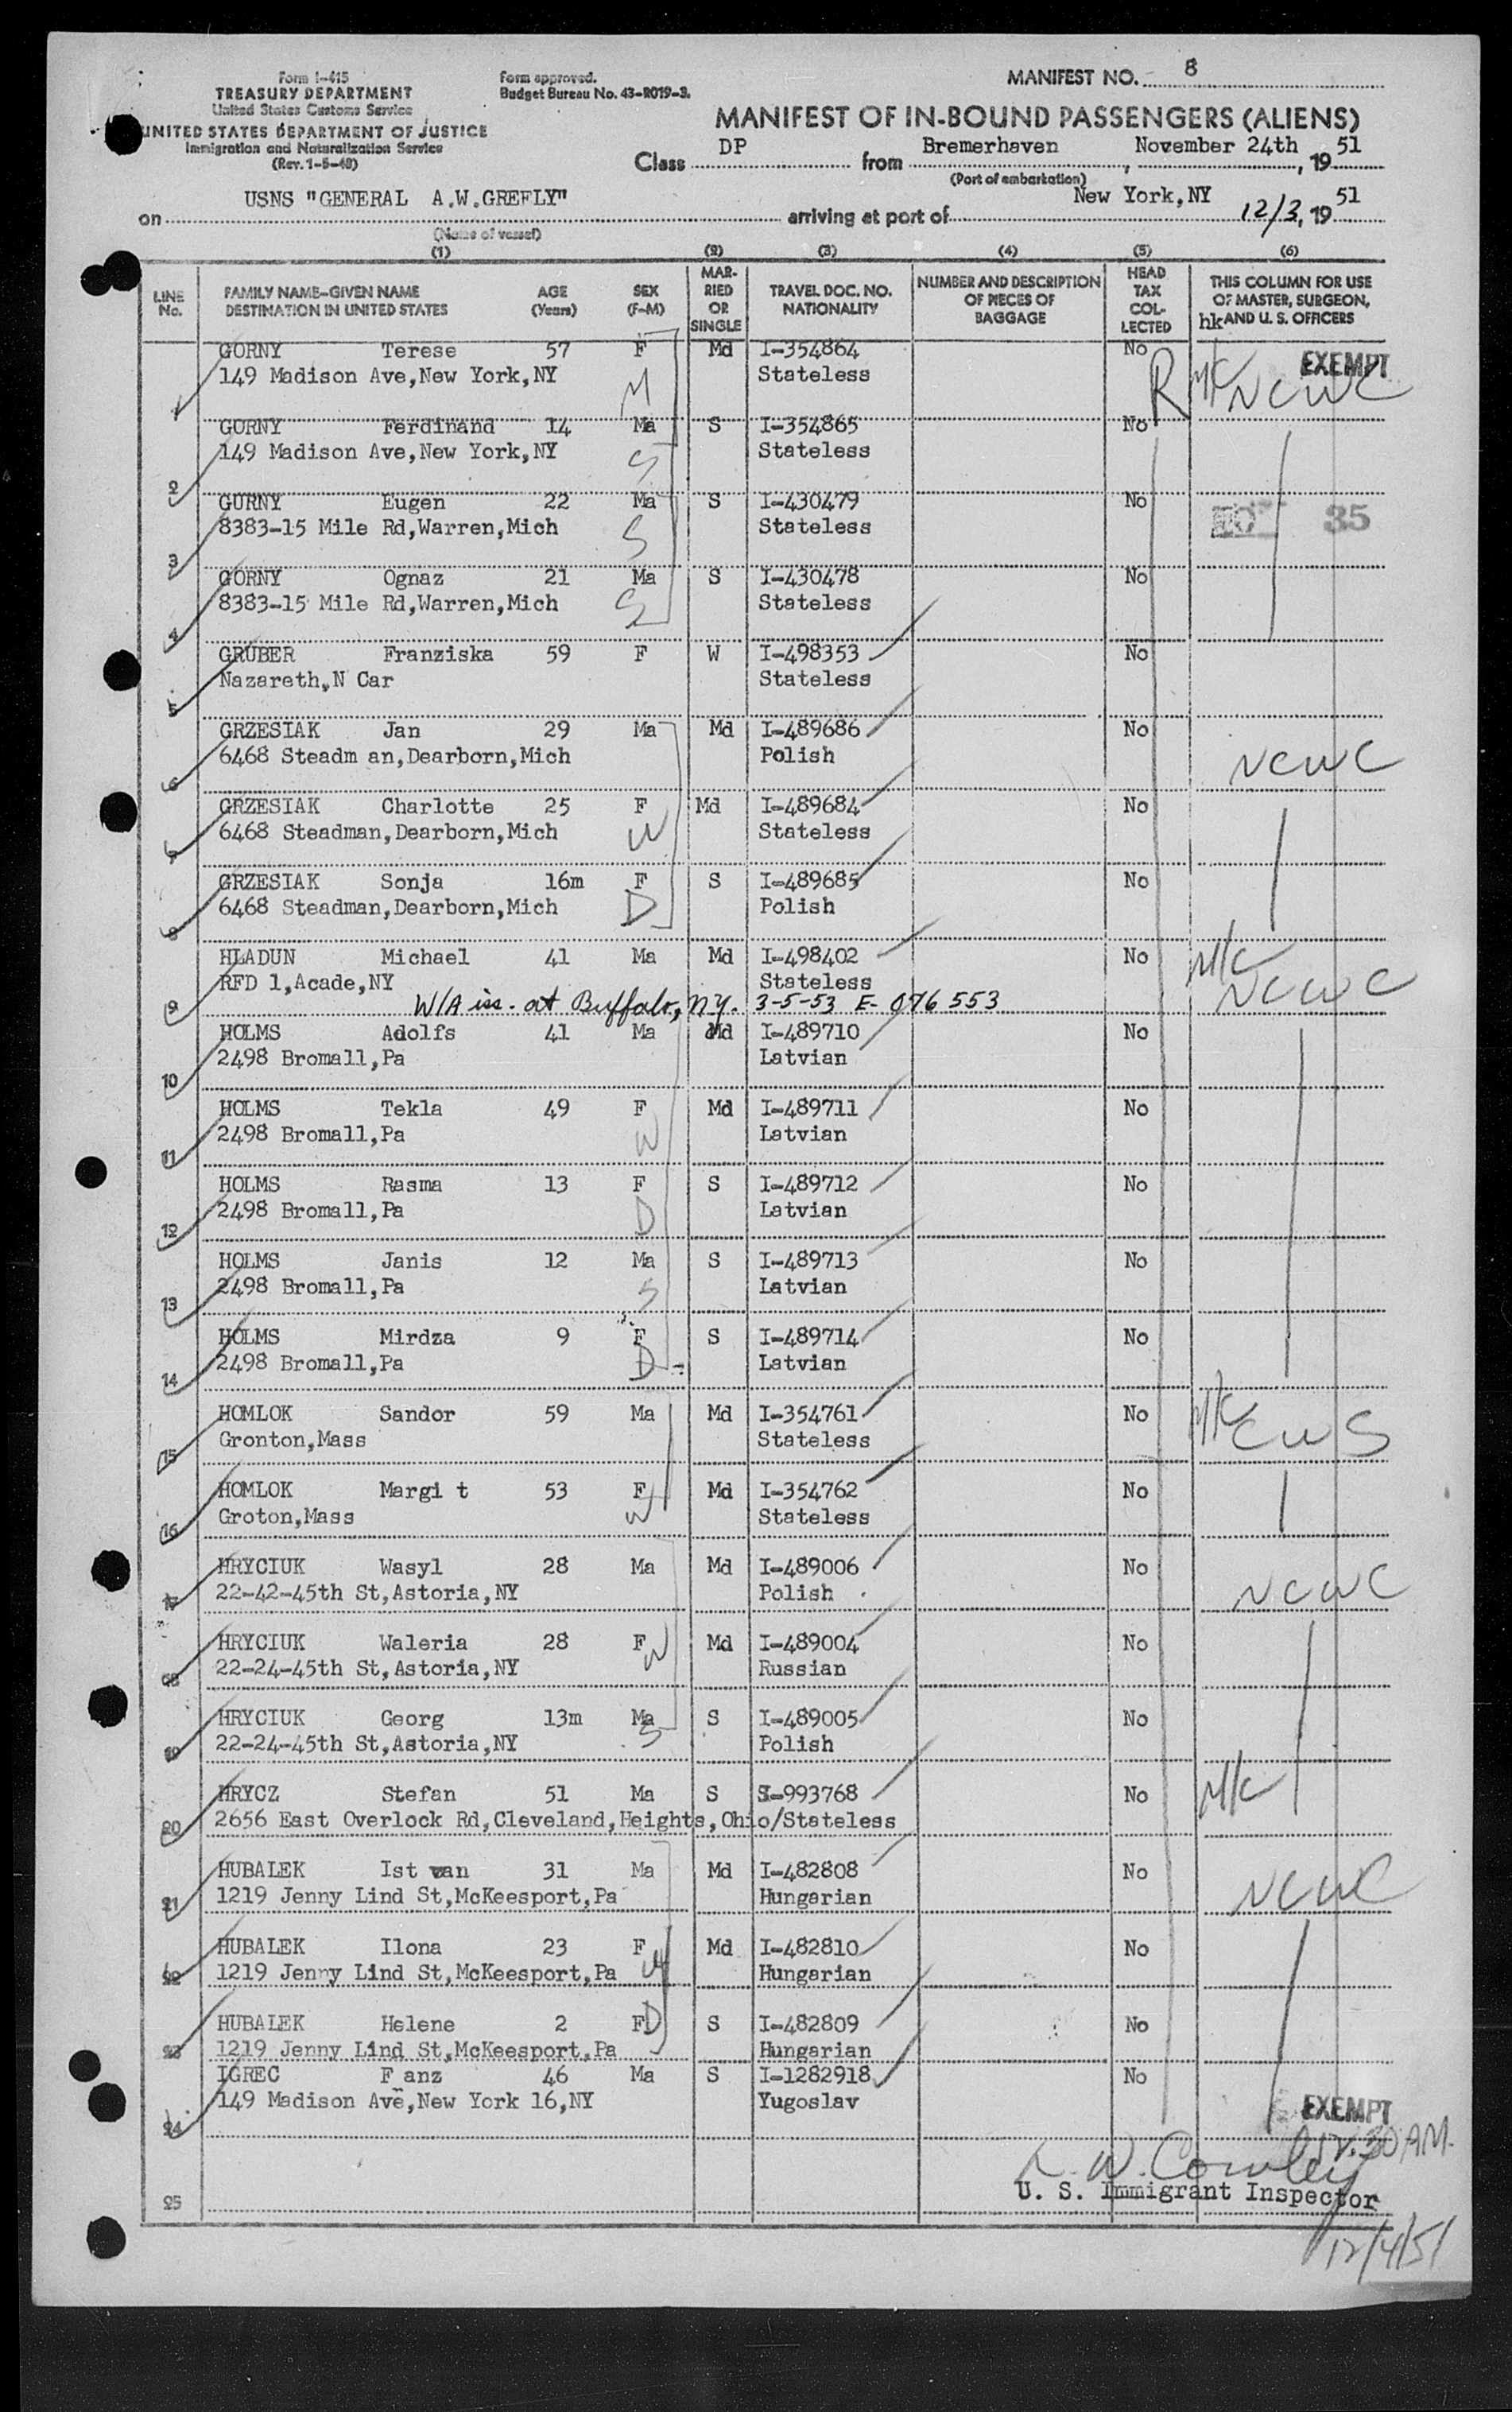 Form I-415
TREASURY DEPARTMENT
United States Customs Service
UNITED STATES DEPARTMENT OF JUSTICE
Immigration and Naturalization Service
(Rev. 1-5-48)
Form approved.
Budget Bureau No. 43-R019-3.
MANIFEST NO. 8
MANIFEST OF IN-BOUND PASSENGERS (ALIENS)
Class DP from Bremerhaven, November 24th, 1951
(Port of embarkation)
on USNS "GENERAL A.W.GREFLY" arriving at port of New York,NY 12/3, 1951
(Name of vessel)
(1) (2) (3) (4) (5) (6)
LINE No. FAMILY NAME-GIVEN NAME DESTINATION IN UNITED STATES AGE (Years) SEX (F-M) MARRIED OR SINGLE TRAVEL DOC. NO. NATIONALITY NUMBER AND DESCRIPTION OF PIECES OF BAGGAGE HEAD TAX COLLECTED THIS COLUMN FOR USE OF MASTER, SURGEON, AND U. S. OFFICERS hk
GORNY Terese 57 F Md I-354864 No R M/C EXEMPT
1 149 Madison Ave,New York,NY M Stateless NCWC
GORNY Ferdinand 14 Ma S I-354865 No
2 149 Madison Ave,New York,NY S Stateless
GURNY Eugen 22 Ma S I-430479 No
3 8383-15 Mile Rd,Warren,Mich S Stateless 35
GORNY Ognaz 21 Ma S I-430478 No
4 8383-15 Mile Rd,Warren,Mich S Stateless
GRUBER Franziska 59 F W I-498353 No
5 Nazareth,N Car Stateless
GRZESIAK Jan 29 Ma Md I-489686 No
6 6468 Steadm an,Dearborn,Mich Polish NCWC
GRZESIAK Charlotte 25 F Md I-489684 No
7 6468 Steadman,Dearborn,Mich W Stateless
GRZESIAK Sonja 16m F S I-489685 No
8 6468 Steadman,Dearborn,Mich D Polish
HLADUN Michael 41 Ma Md I-498402 No M/C
9 RFD 1,Acade,NY Stateless NCWC
W/A iss. at Buffalo, N.Y. 3-5-53 E-076553
HOLMS Adolfs 41 Ma Md I-489710 No
10 2498 Bromall,Pa Latvian
HOLMS Tekla 49 F Md I-489711 No
11 2498 Bromall,Pa W Latvian
HOLMS Rasma 13 F S I-489712 No
12 2498 Bromall,Pa D Latvian
HOLMS Janis 12 Ma S I-489713 No
13 2498 Bromall,Pa S Latvian
HOLMS Mirdza 9 F S I-489714 No
14 2498 Bromall,Pa D Latvian
HOMLOK Sandor 59 Ma Md I-354761 No M/C
15 Gronton,Mass Stateless CWS
HOMLOK Margi t 53 F Md I-354762 No
16 Groton,Mass W Stateless
HRYCIUK Wasyl 28 Ma Md I-489006 No
17 22-42-45th St,Astoria,NY Polish NCWC
HRYCIUK Waleria 28 F W Md I-489004 No
18 22-24-45th St,Astoria,NY Russian
HRYCIUK Georg 13m Ma S I-489005 No
19 22-24-45th St,Astoria,NY S Polish
HRYCZ Stefan 51 Ma S I-993768 No M/C
20 2656 East Overlock Rd,Cleveland,Heights,Ohio/Stateless
HUBALEK Ist van 31 Ma Md I-482808 No
21 1219 Jenny Lind St,McKeesport,Pa Hungarian NCWC
HUBALEK Ilona 23 F Md I-482810 No
22 1219 Jenny Lind St,McKeesport,Pa W Hungarian
HUBALEK Helene 2 F D S I-482809 No
23 1219 Jenny Lind St,McKeesport,Pa Hungarian
IGREC F anz 46 Ma S I-1282918 No
24 149 Madison Ave,New York 16,NY Yugoslav EXEMPT
12:30 AM.
W. Cowley
25 U. S. Immigrant Inspector
12/4/51